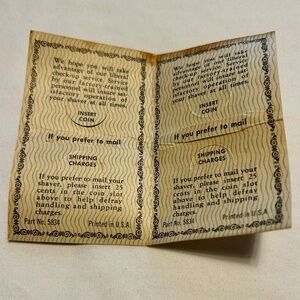 We hope you will take
advantage of our liberal
check-up service. Service
by our factory-trained
personnel will insure sat-
isfactory operation of
your shaver at all times.
INSERT
COIN
If you prefer to mail
SHIPPING
CHARGES
If you prefer to mail your
shaver, please insert 25
cents in the coin slot
above to help defray
handling and shipping
charges.
Part No. 5834 Printed in U.S.A.
We hope you will take
advantage of our liberal
check-up service. Service
by our factory-trained
personnel will insure sat-
isfactory operation of
your shaver at all times.
INSERT
COIN
If you prefer to mail
SHIPPING
CHARGES
If you prefer to mail your
shaver, please insert 25
cents in the coin slot
above to help defray
handling and shipping
charges.
Part No. 5834 Printed in U.S.A.